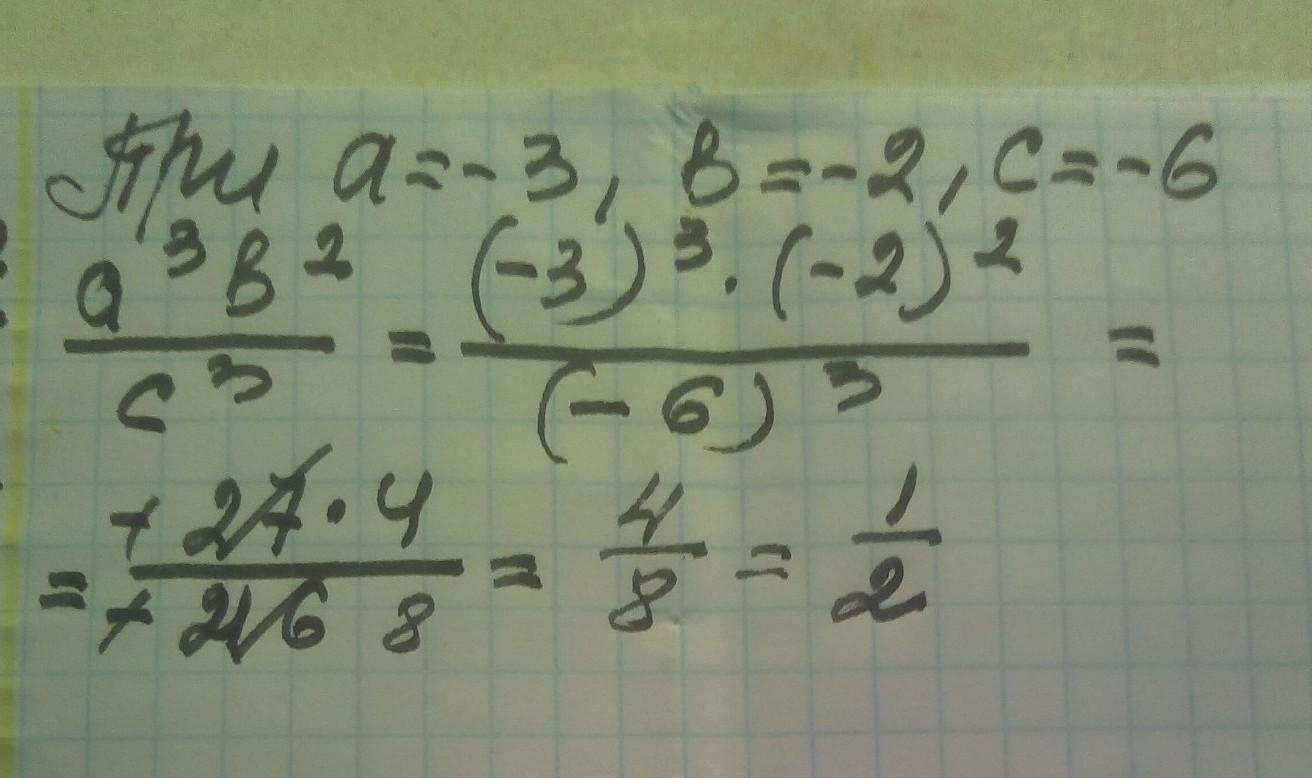 При a=-3, в=-2, c=-6
a³в²/c³ = (-3)³·(-2)²/(-6)³ =
= +27·4/+216 8 = 4/8 = 1/2